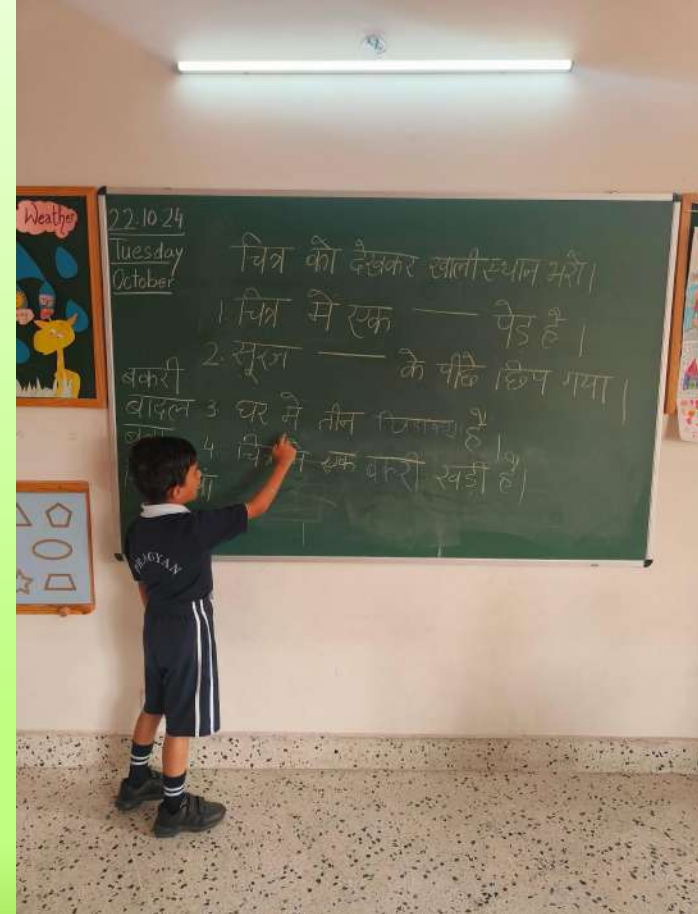 Weather
22.10.24
Tuesday
October
चित्र को देखकर खाली स्थान भरो।
1. चित्र मे एक —— पेड है।
2. सूरज —— के पीछे छिप गया।
बकरी
बादल
3. घर मे तीन है।
4. चित्र मे एक बकरी खड़ी है।
PRAGYAN